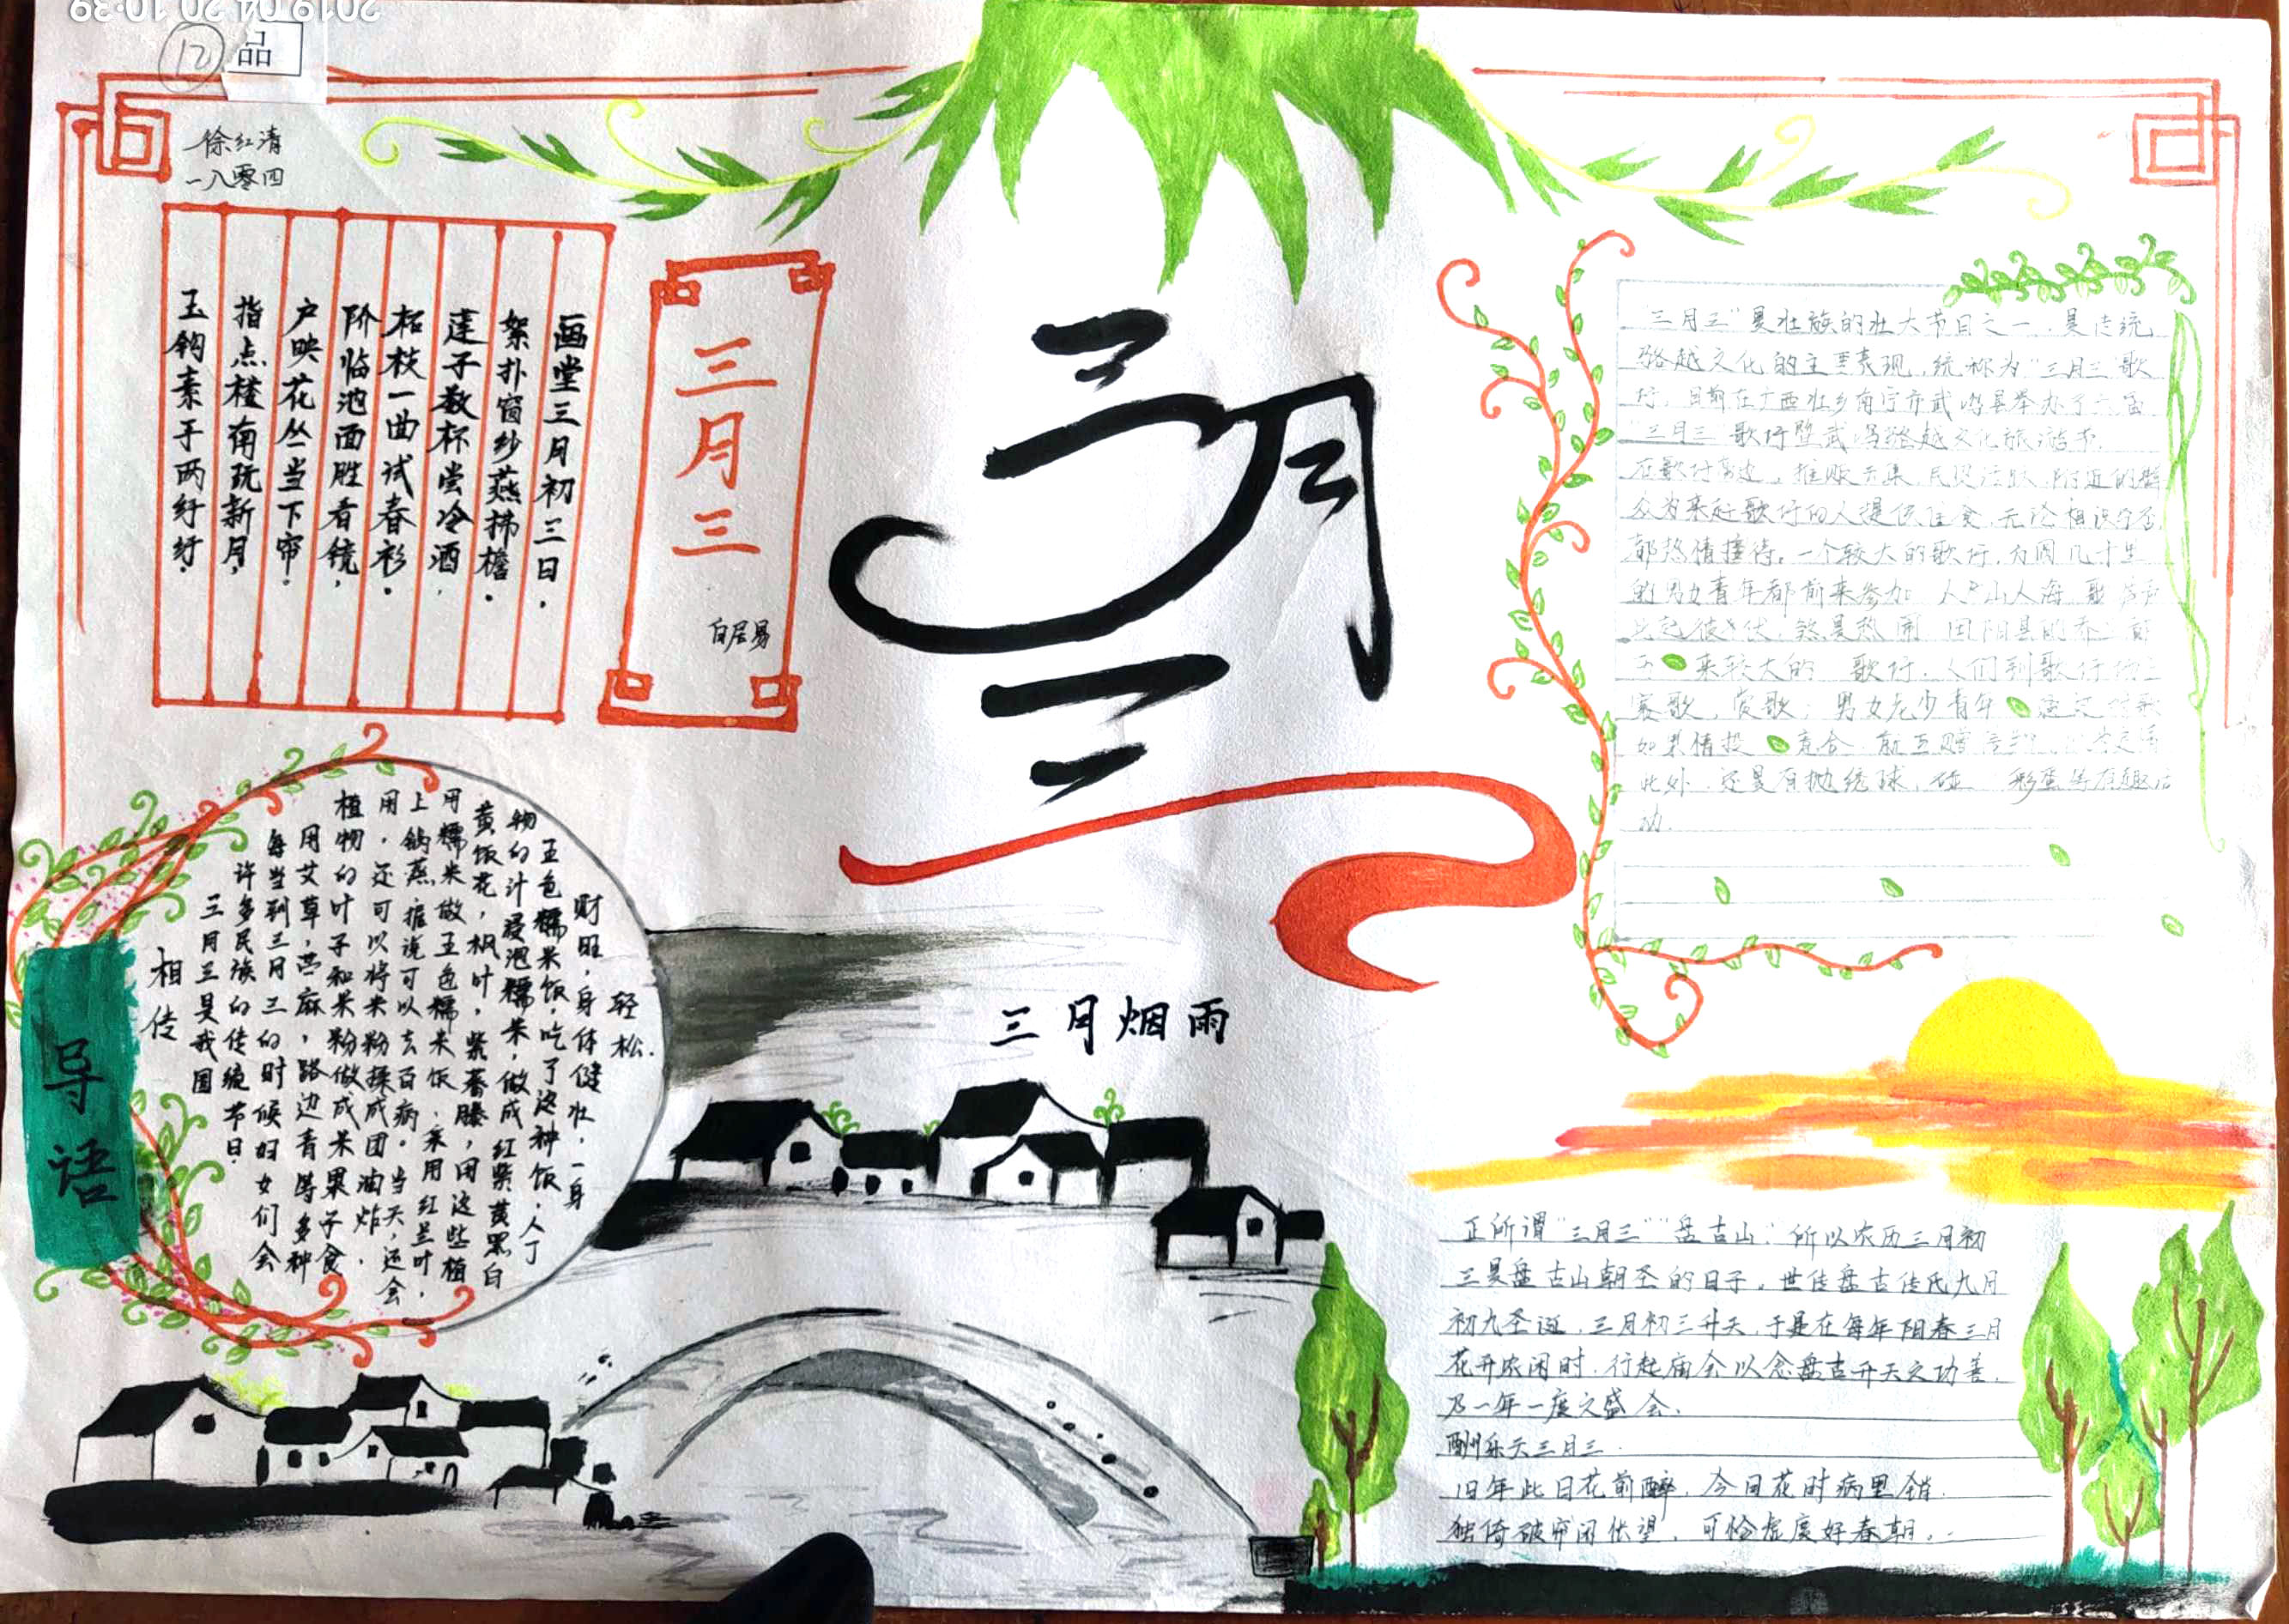 2019 04 20 10:39
12
品
徐红清
一八零四
画堂三月初三日，
絮扑窗纱燕拂檐。
莲子数杯尝冷酒，
柘枝一曲试春衫。
阶临池面胜看镜，
户映花丛当下帘。
指点楼南玩新月，
玉钩素手两纤纤。
三月三
白居易
三月三
导语
相传
三月三是我国
许多民族的传统节日。
每当到三月三的时候妇女们会
用艾草，苎麻，路边青等多种
植物的叶子和米粉做成米果子食
用，还可以将米粉揉成团油炸，
上锅蒸，据说可以去百病。当天，还会
用糯米做五色糯米饭，采用红兰叶，
黄饭花，枫叶，紫蕃藤，用这些植
物的汁浸泡糯米，做成红紫黄黑白
五色糯米饭，吃了这种饭，人丁
财旺，身体健壮，一身
轻松.
三月烟雨
"三月三"是壮族的壮大节目之一，是传统
骆越文化的主要表现，统称为"三月三"歌
圩，目前在广西壮乡南宁市武鸣县举办了六届
"三月三"歌圩暨武鸣骆越文化旅游节.
在歌圩旁边，摊贩云集，民贸活跃，附近的群
众为来赶歌圩的人提供住食，无论相识与否，
都热情接待。一个较大的歌圩，方圆几十里
的男女青年都前来参加，人山人海，歌声
此起彼伏，煞是热闹
来较大的 歌圩，人们到歌圩
赛歌，赏歌；男女老少青年 通过对歌
如果情投 意合
此外，还是有抛绣球，碰 彩蛋等有趣活
动.
正所谓"三月三""盘古山"，所以农历三月初
三是盘古山朝圣的日子。世传盘古传氏九月
初九圣诞，三月初三升天，于是在每年阳春三月
花开农闲时，行起庙会以念盘古开天之功善，
乃一年一度之盛会.
酬乐天三月三.
旧年此日花前醉，今日花时病里销.
独倚破帘闲怅望，可怜虚度好春朝。